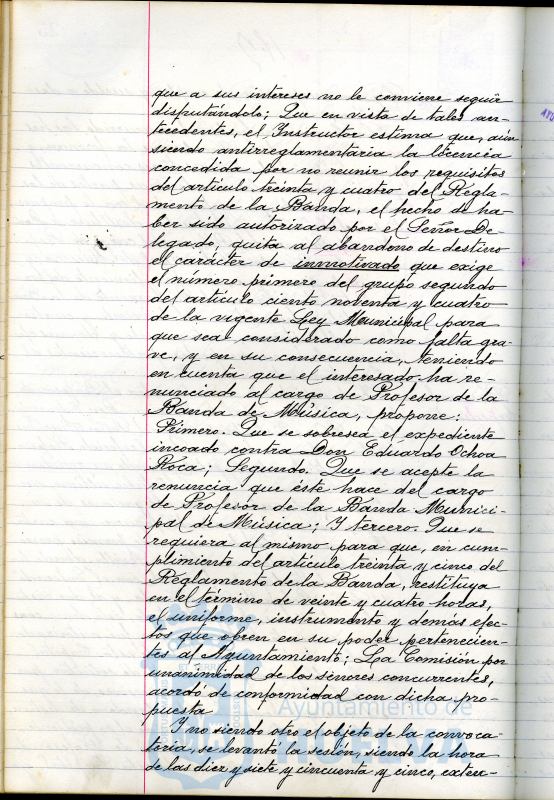 que a sus intereses no le conviene seguir
disfrutándolo; Que en vista de tales an-
tecedentes, el Instructor estima que, aún
siendo antirreglamentaria la licencia
concedida por no reunir los requisitos
del artículo treinta y cuatro del Regla-
mento de la Banda, el hecho de ha-
ber sido autorizado por el Señor De
legado, quita al abandono de destino
el carácter de inmotivado que exige
el número primero del grupo segundo
del artículo ciento noventa y cuatro
de la vigente Ley Municipal para
que sea considerado como falta gra-
ve, y en su consecuencia, teniendo
en cuenta que el interesado ha re-
nunciado al cargo de Profesor de la
Banda de Música, propone:
Primero. Que se sobresea el expediente
incoado contra Don Eduardo Ochoa
Roca; Segundo. Que se acepte la
renuncia que éste hace del cargo
de Profesor de la Banda Munici-
pal de Música; Y tercero. Que se
requiera al mismo para que, en cum-
plimiento del artículo treinta y cinco del
Reglamento de la Banda, restituya
en el término de veinte y cuatro horas,
el uniforme, instrumento y demás efec-
tos que obren en su poder pertenecien-
tes al Ayuntamiento; La Comisión por
unanimidad de los señores concurrentes,
acordó de conformidad con dicha pro-
puesta
Ayuntamiento de
Y no siendo otro el objeto de la convoca-
toria, se levantó la sesión, siendo la hora
de las diez y siete y cincuenta y cinco, exten-